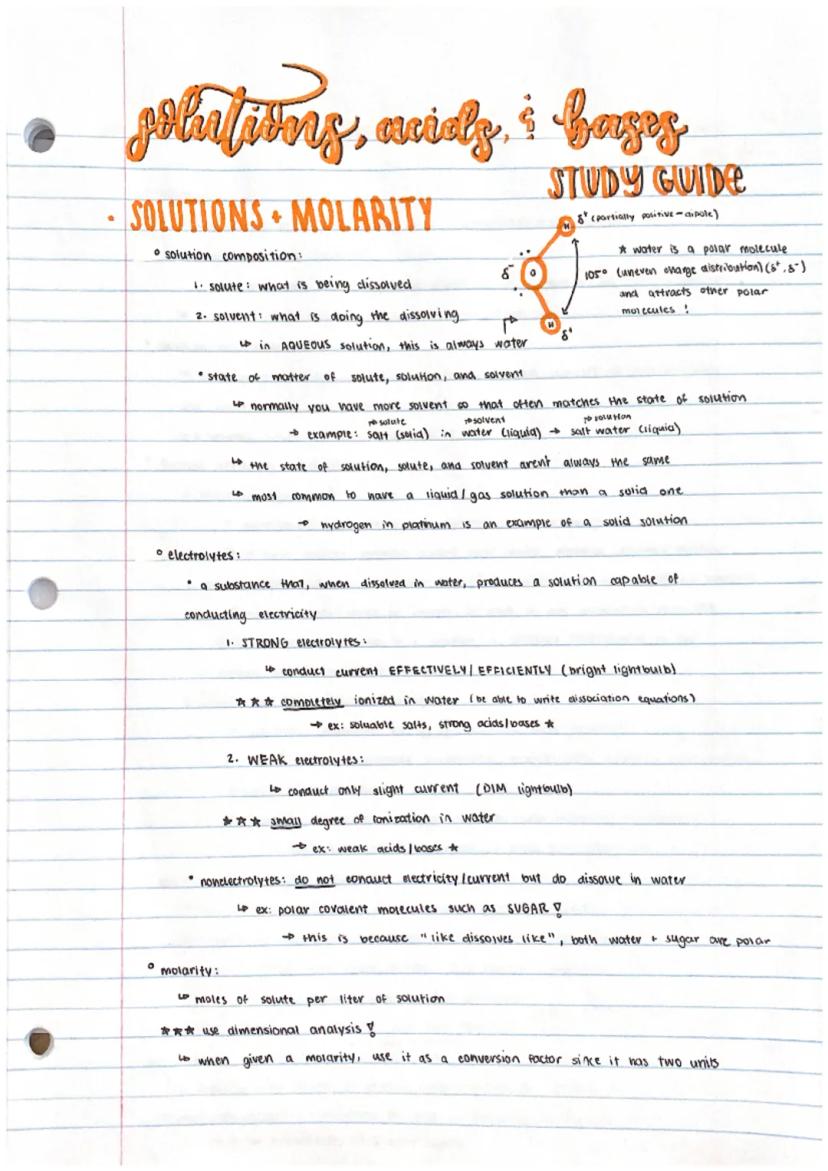 solutions, acids, & bases
STUDY GUIDE
• SOLUTIONS + MOLARITY
° solution composition:
1. solute: what is being dissolved
2. solvent: what is doing the dissolving
↳ in AQUEOUS solution, this is always water
H δ⁺ (partially positive - dipole)
δ⁻ O 105°
H δ⁺
★ water is a polar molecule
(uneven charge distribution) (δ⁺, δ⁻)
and attracts other polar
molecules !
• state of matter of solute, solution, and solvent
↳ normally you have more solvent so that often matches the state of solution
→ solute → solvent → solution
→ example: salt (solid) in water (liquid) → salt water (liquid)
↳ the state of solution, solute, and solvent aren't always the same
↳ most common to have a liquid/gas solution than a solid one
→ hydrogen in platinum is an example of a solid solution
° electrolytes:
• a substance that, when dissolved in water, produces a solution capable of
conducting electricity
1. STRONG electrolytes:
↳ conduct current EFFECTIVELY/EFFICIENTLY (bright lightbulb)
★★★ completely ionized in water (be able to write dissociation equations)
→ ex: soluable salts, strong acids/bases ★
2. WEAK electrolytes:
↳ conduct only slight current (DIM lightbulb)
★★★ small degree of ionization in water
→ ex: weak acids/bases ★
• nonelectrolytes: do not conduct electricity/current but do dissolve in water
↳ ex: polar covalent molecules such as SUGAR !
→ this is because "like dissolves like", both water + sugar are polar
° molarity:
↳ moles of solute per liter of solution
★★★ use dimensional analysis !
↳ when given a molarity, use it as a conversion factor since it has two units